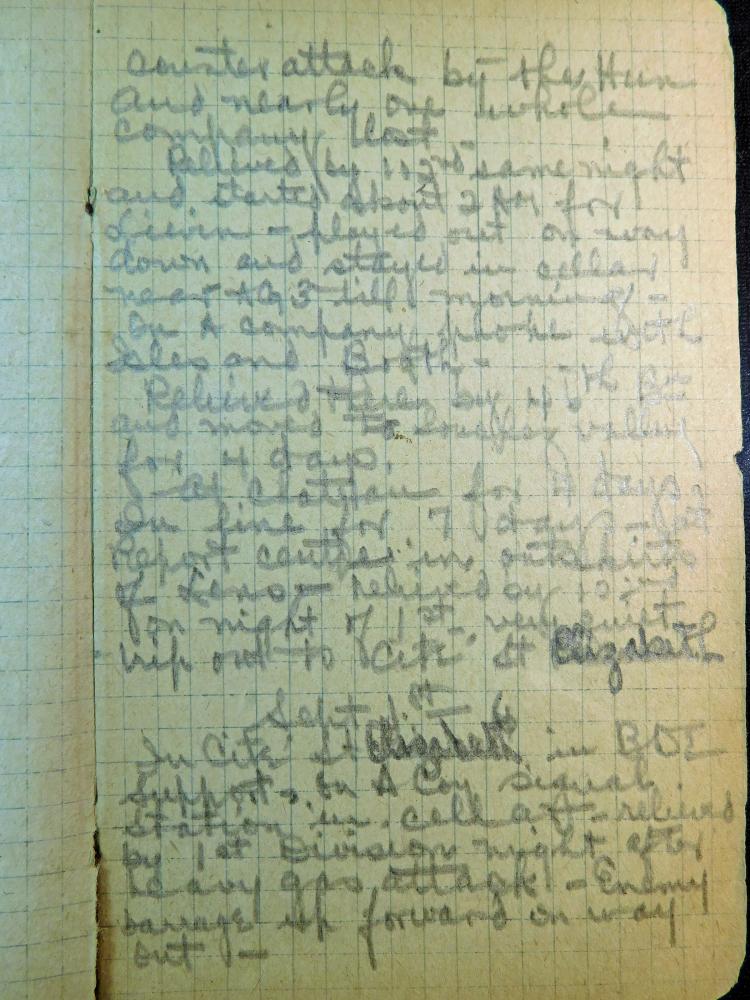 counter attack by the Hun
and nearly one whole
company lost
Relieved by 102nd same night
and started about 2 AM for
Lievin - played out on way
down and stayed in cellar
near HQ 3 till morning -
On A company phone with
and Booth -
Relieved there by 46th Bn
and moved to valley
for 4 days.
At Chateau for 4 days.
In line for 7 days - at
Report centre in outskirts
of Lens - relieved by
on night of 1st very quiet
trip out to Cité St Elizabeth
Sept 1st - 6
In Cité St Elizabeth in BDE
Support, on A Coy signal
station in cellar - relieved
by 1st Division night after
heavy gas attack - Enemy
barrage up forward on way
out -